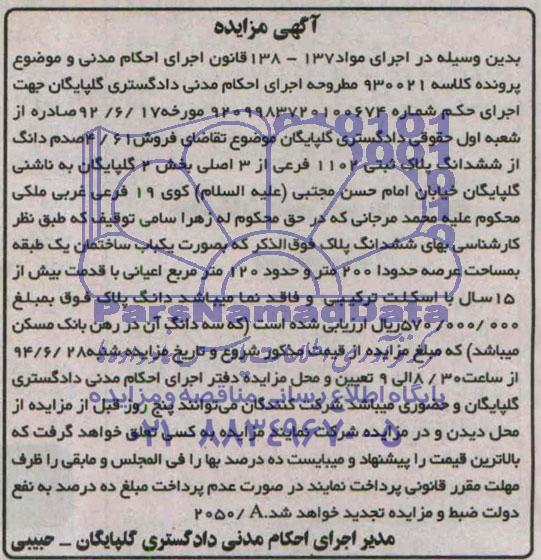 آگهی مزایده
بدین وسیله در اجرای مواد۱۳۷ - ۱۳۸قانون اجرای احکام مدنی و موضوع
پرونده کلاسه ۹۳۰۰۲۱ مطروحه اجرای احکام مدنی دادگستری گلپایگان جهت
اجرای حکم شماره ۹۲۰۹۹۸۳۷۲۰۱۰۰۶۷۴ مورخه۱۷ /۶/ ۹۲صادره از
شعبه اول حقوقی دادگستری گلپایگان موضوع تقاضای فروش۶۱ /۴صدم دانگ
از ششدانگ پلاک ثبتی ۱۱۰۲ فرعی از ۳ اصلی بخش ۲ گلپایگان به ناشنی
گلپایگان خیابان امام حسن مجتبی (علیه السلام) کوی ۱۹ فرعی غربی ملکی
محکوم علیه محمد مرجانی که در حق محکوم له زهرا سامی توقیف که طبق نظر
کارشناسی بهای ششدانگ پلاک فوق‌الذکر که بصورت یکباب ساختمان یک طبقه
بمساحت عرصه حدودا ۲۰۰ متر و حدود ۱۲۰ متر مربع اعیانی با قدمت بیش از
۱۵سال با اسکلت ترکیبی و فاقد نما میباشد دانگ پلاک فوق بمبلغ
۵۷۰/۰۰۰/۰۰۰ریال ارزیابی شده است (که سه دانگ آن در رهن بانک مسکن
میباشد) که مبلغ مزایده از قیمت مذکور شروع و تاریخ مزایده شنبه۲۸ /۹۴/۶
از ساعت۳۰ /۸الی ۹ تعیین و محل مزایده دفتر اجرای احکام مدنی دادگستری
گلپایگان و حضوری میباشد شرکت کنندگان می‌توانند پنج روز قبل از مزایده از
محل دیدن و در مزایده شرکت نمایند مزایده به کسی تعلق خواهد گرفت که
بالاترین قیمت را پیشنهاد و میبایست ده درصد بها را فی المجلس و مابقی را ظرف
مهلت مقرر قانونی پرداخت نمایند در صورت عدم پرداخت مبلغ ده درصد به نفع
دولت ضبط و مزایده تجدید خواهد شد.۲۰۵۰/ A
مدیر اجرای احکام مدنی دادگستری گلپایگان ــ حبیبی
ParsNamadData
پایگاه اطلاع رسانی مناقصه و مزایده
۰۲۱-۸۸۳۴۹۶۷۰-۵